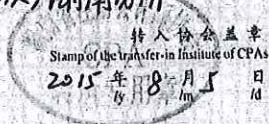 转入协会盖章
Stamp of the transfer-in Institute of CPAs
2015年8月5日
/y /m /d